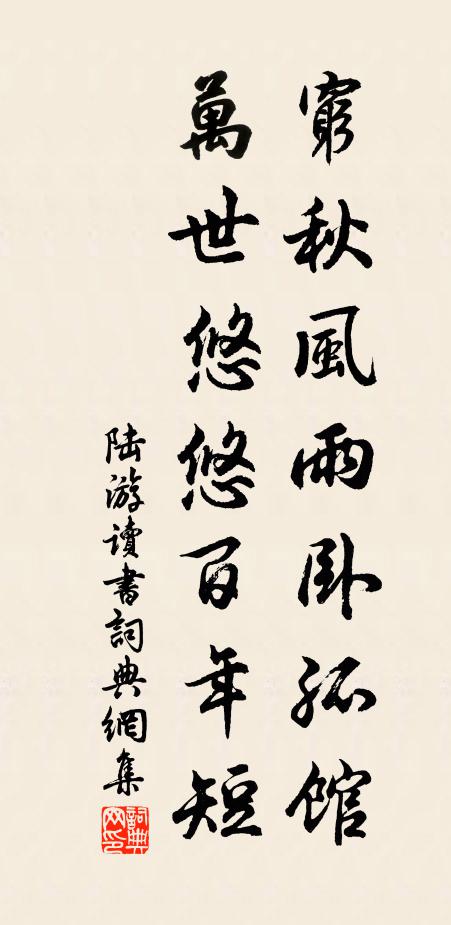 窮秋風雨卧孤館
萬世悠悠百年短
陸游讀書詞典網集
詞典網印